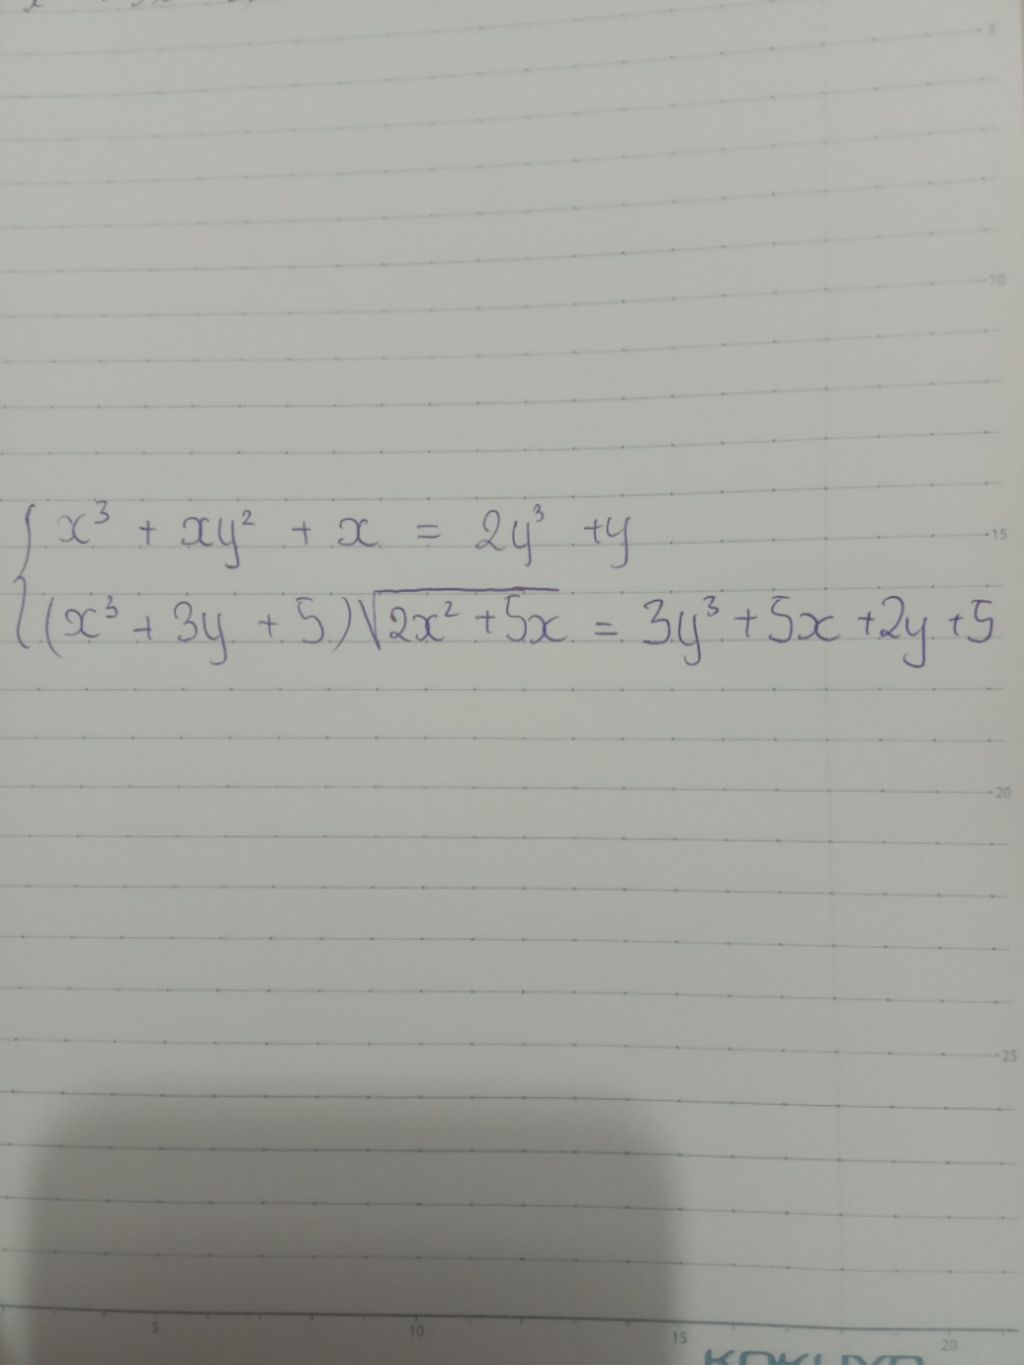 x³ + xy² + x = 2y³ + y
(x³ + 3y + 5)√(2x² + 5x) = 3y³ + 5x + 2y + 5
5
10
15
20
25
5 10 15 20
KOKUYO